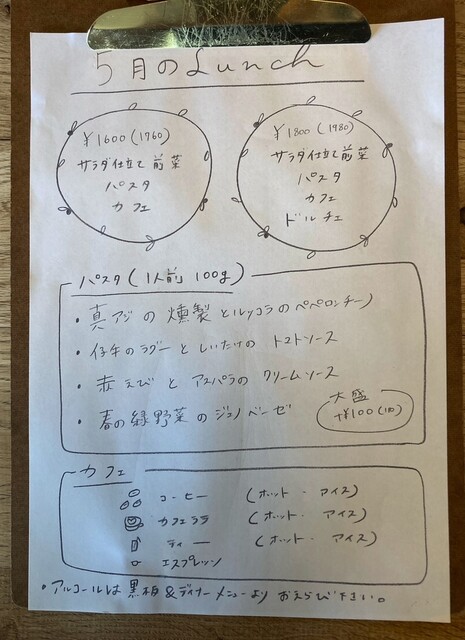 5月のLunch
¥1600(1760)
サラダ仕立て前菜
パスタ
カフェ
¥1800(1980)
サラダ仕立て前菜
パスタ
カフェ
ドルチェ
パスタ(1人前 100g)
・真アジの燻製とルッコラのペペロンチーノ
・仔牛のラグーとしいたけのトマトソース
・赤えびとアスパラのクリームソース
・春の緑野菜のジェノベーゼ
大盛
+¥100(110)
カフェ
コーヒー (ホット・アイス)
カフェラテ (ホット・アイス)
ティー (ホット・アイス)
エスプレッソ
・アルコールは黒板&ディナーメニューよりおえらび下さい。